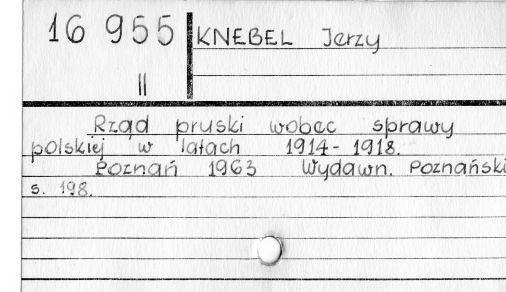 16 955
II
KNEBEL Jerzy
Rząd pruski wobec sprawy
polskiej w latach 1914-1918.
Poznań 1963 Wydawn. Poznański
s. 198.